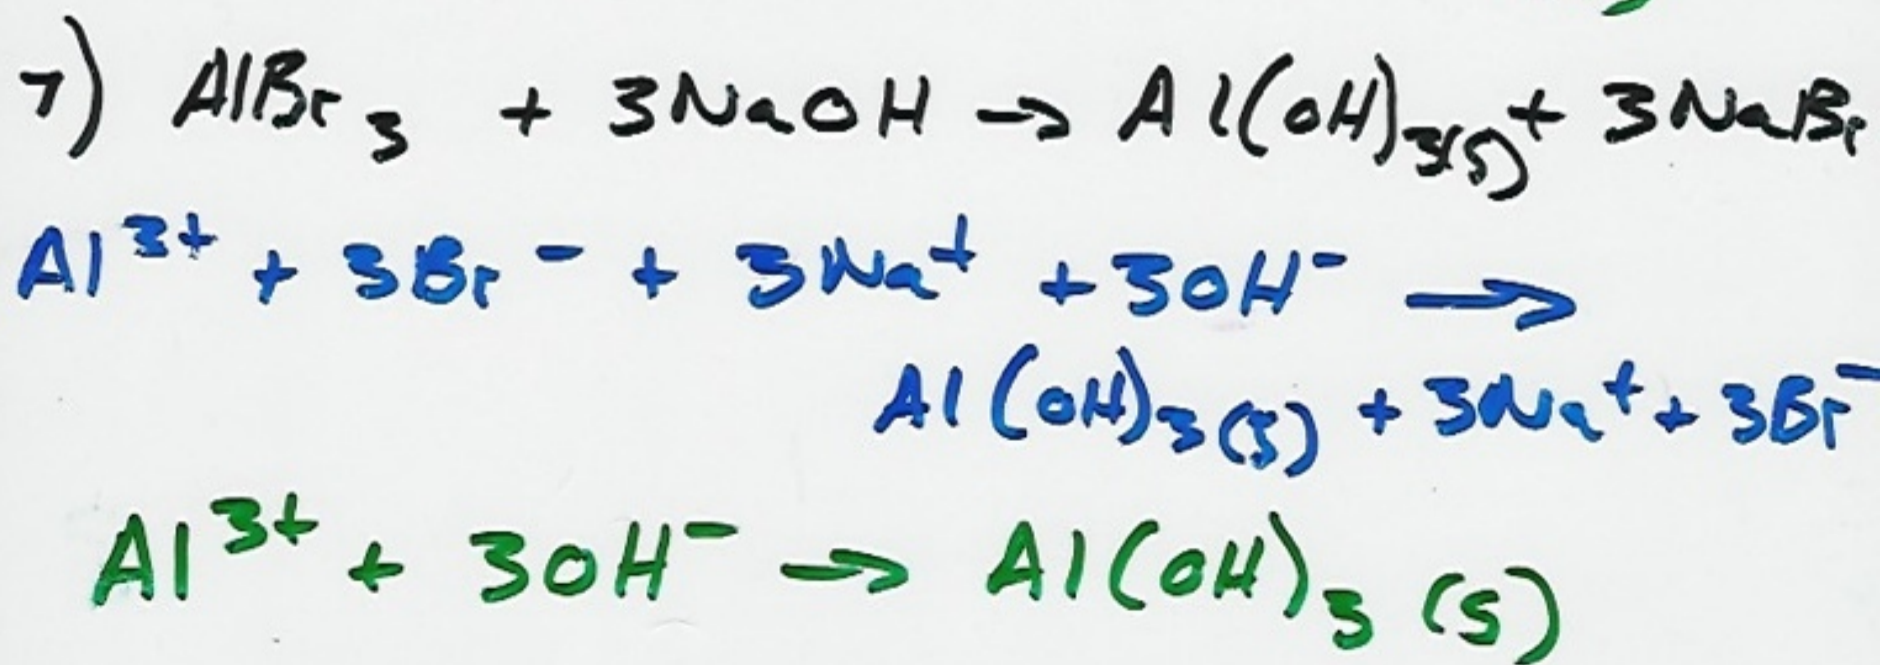 7) AlBr₃ + 3NaOH → Al(OH)₃(s) + 3NaBr
Al³⁺ + 3Br⁻ + 3Na⁺ + 3OH⁻ →
Al(OH)₃(s) + 3Na⁺ + 3Br⁻
Al³⁺ + 3OH⁻ → Al(OH)₃(s)